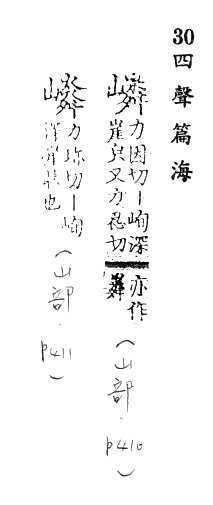 30四聲篇海
力因切丨峋深
崖皃又力忍切
亦作
（山部．p410）
力珍切丨峋
深崖狀也
（山部．p411）